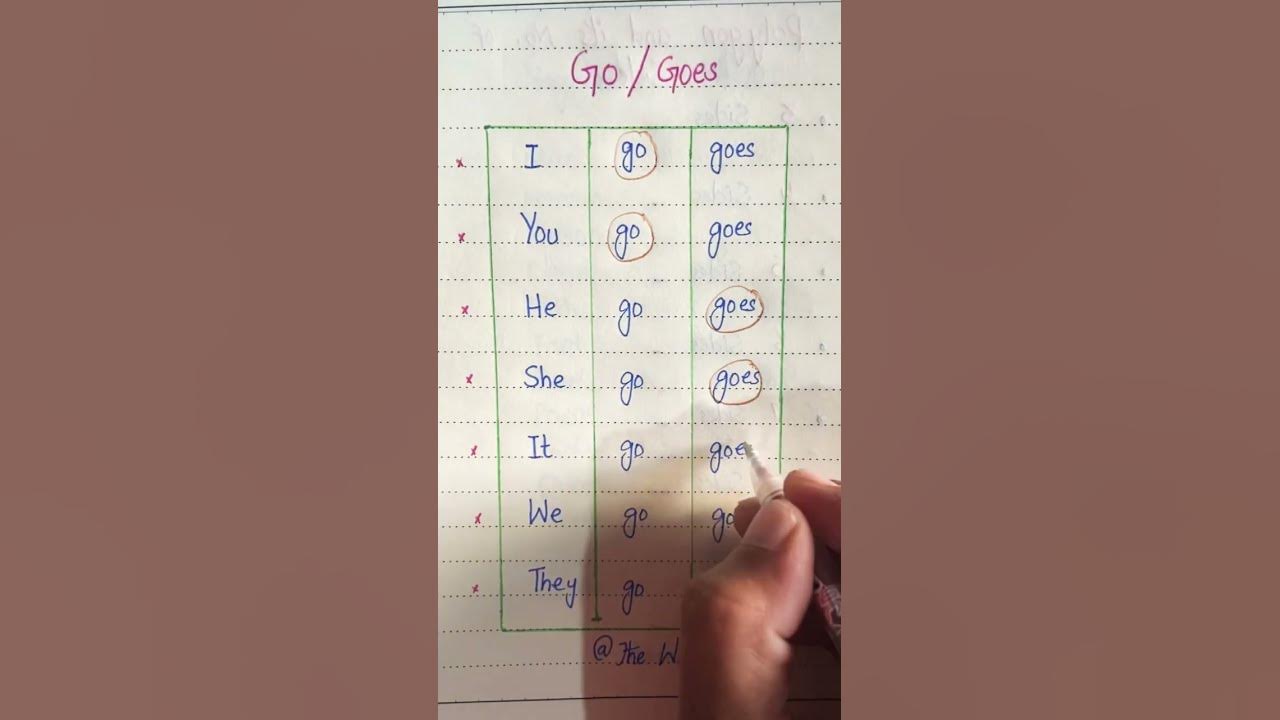 Go / Goes
I go goes
You go goes
He go goes
She go goes
It go goe
We go go
They go
@The W